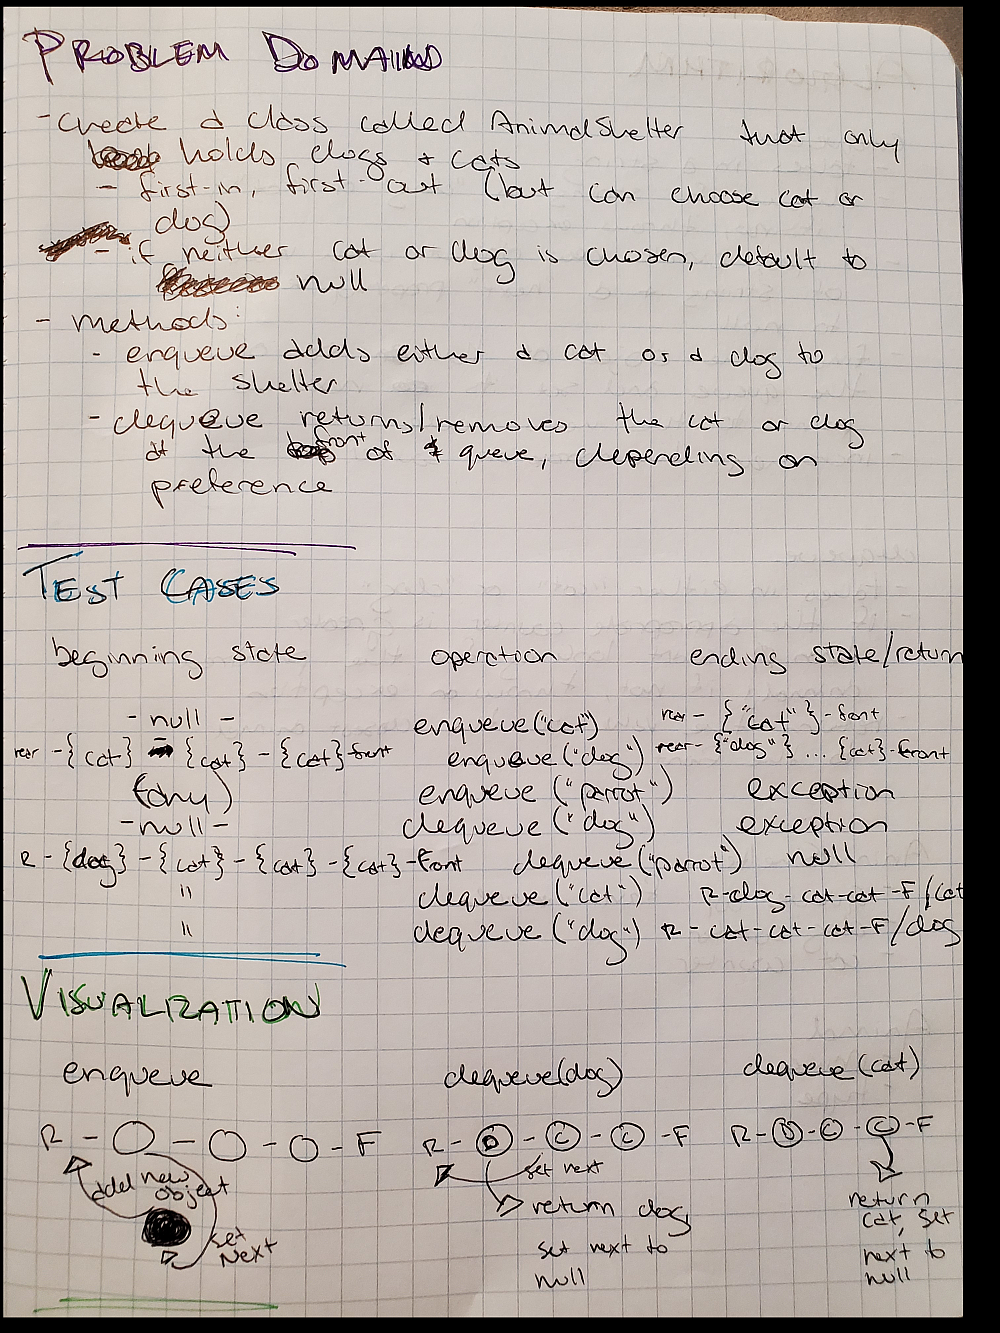 PROBLEM DOMAIN
- create a class called AnimalShelter that only
holds dogs + cats
- first-in, first-out (but can choose cat or
dog)
- if neither cat or dog is chosen, default to
null
- methods:
- enqueue adds either a cat or a dog to
the shelter
- dequeue returns/removes the cat or dog
at the front of queue, depending on
preference
TEST CASES
beginning state operation ending state/return
- null - enqueue("cat") rear - {"cat"} - front
rear - {cat} - {cat} - {cat} front enqueue("dog") rear - {"dog"} ... {cat} - front
(any) enqueue ("parrot") exception
- null - dequeue ("dog") exception
R - {dog} - {cat} - {cat} - {cat} - front dequeue("parrot") null
" dequeue ("cat") R - dog - cat - cat - F / cat
" dequeue ("dog") R - cat - cat - cat - F / dog
VISUALIZATION
enqueue dequeue(dog) dequeue (cat)
R - - - - F R - D - C - C - F R - D - C - C - F
add new object
set next
set next
return dog,
set next to
null
return
cat, set
next to
null